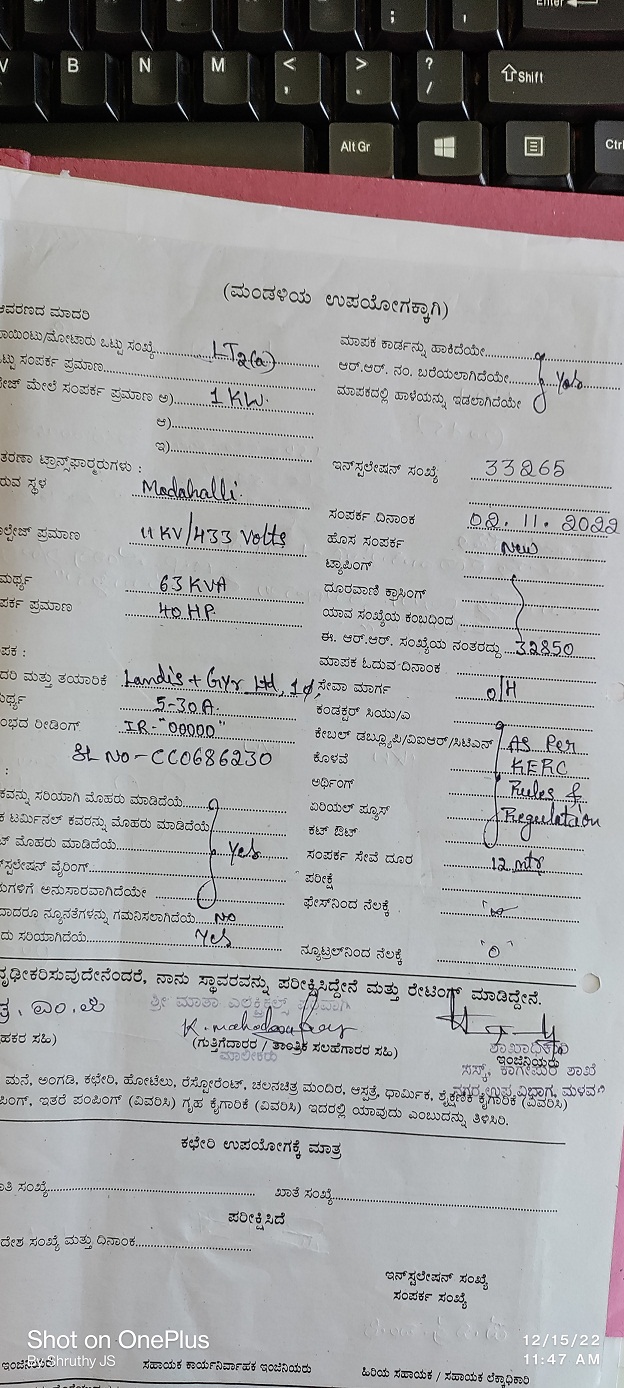 ; ,
Enter
V B N M < , > . ? / Shift
Alt Gr Ctrl
(ಮಂಡಳಿಯ ಉಪಯೋಗಕ್ಕಾಗಿ)
ಆವರಣದ ಮಾದರಿ
ಮಾಪಕ ಕಾರ್ಡನ್ನು ಹಾಕಿದೆಯೇ
ಾಯಿಂಟು/ಮೋಟಾರು ಒಟ್ಟು ಸಂಖ್ಯೆ LT2(a)
ಆರ್.ಆರ್. ನಂ. ಬರೆಯಲಾಗಿದೆಯೇ Yes
ಟ್ಟು ಸಂಪರ್ಕ ಪ್ರಮಾಣ
ಮಾಪಕದಲ್ಲಿ ಹಾಳೆಯನ್ನು ಇಡಲಾಗಿದೆಯೇ
ೇಜ್ ಮೇಲೆ ಸಂಪರ್ಕ ಪ್ರಮಾಣ ಅ) 1 KW.
ಆ)
ಇ)
ತರಣಾ ಟ್ರಾನ್ಸ್‌ಫಾರ್ಮರುಗಳು :
ಇನ್‌ಸ್ಟಲೇಷನ್ ಸಂಖ್ಯೆ 33265
ರುವ ಸ್ಥಳ Madahalli.
ಸಂಪರ್ಕ ದಿನಾಂಕ 02.11.2022
ಲ್ಟೇಜ್ ಪ್ರಮಾಣ 11 KV/433 Volts
ಹೊಸ ಸಂಪರ್ಕ New
ಟ್ಯಾಪಿಂಗ್
ಮರ್ಥ್ಯ 63 KVA
ದೂರವಾಣಿ ಕ್ರಾಸಿಂಗ್
ಪರ್ಕ ಪ್ರಮಾಣ 40 HP.
ಯಾವ ಸಂಖ್ಯೆಯ ಕಂಬದಿಂದ
ಈ. ಆರ್.ಆರ್. ಸಂಖ್ಯೆಯ ನಂತರದ್ದು 32850
ಪಕ :
ಮಾಪಕ ಓದುವ ದಿನಾಂಕ
ದರಿ ಮತ್ತು ತಯಾರಿಕೆ Landis + Gyr Ltd, 1φ,
ಸೇವಾ ಮಾರ್ಗ O/H
ರ್ಥ್ಯ 5-30A.
ಕಂಡಕ್ಟರ್ ಸಿಯು/ಎ
ಂಭದ ರೀಡಿಂಗ್ IR-"00000"
ಕೇಬಲ್ ಡಬ್ಲ್ಯೂಪಿ/ವಿಐಆರ್/ಸಿಟಿಎಸ್ As Per
SL No - CC0686230
ಕೊಳವೆ KERC
ಅರ್ಥಿಂಗ್ Rules &
ಕವನ್ನು ಸರಿಯಾಗಿ ಮೊಹರು ಮಾಡಿದೆಯೆ
ಏರಿಯಲ್ ಫ್ಯೂಸ್ Regulation
ಕ ಟರ್ಮಿನಲ್ ಕವರನ್ನು ಮೊಹರು ಮಾಡಿದೆಯೆ
ಕಟ್ ಔಟ್
ಟ್ ಮೊಹರು ಮಾಡಿದೆಯೆ Yes
ಸಂಪರ್ಕ ಸೇವೆ ದೂರ 12 mtr
್‌ಸ್ಟಲೇಷನ್ ವೈರಿಂಗ್
ಪರೀಕ್ಷೆ
ುಗಳಿಗೆ ಅನುಸಾರವಾಗಿದೆಯೇ
ಫೇಸ್‌ನಿಂದ ನೆಲಕ್ಕೆ
ಾದಾದರೂ ನ್ಯೂನತೆಗಳನ್ನು ಗಮನಿಸಲಾಗಿದೆಯೆ NO
ದು ಸರಿಯಾಗಿದೆಯೆ Yes
ನ್ಯೂಟ್ರಲ್‌ನಿಂದ ನೆಲಕ್ಕೆ "0"
ೃಢೀಕರಿಸುವುದೇನೆಂದರೆ, ನಾನು ಸ್ಥಾವರವನ್ನು ಪರೀಕ್ಷಿಸಿದ್ದೇನೆ ಮತ್ತು ರೇಟಿಂಗ್ ಮಾಡಿದ್ದೇನೆ.
ಶ್ರೀ ಮಾತಾ ಎಲೆಕ್ಟ್ರಿಕಲ್ಸ್
ಹಕರ ಸಹಿ)
(ಗುತ್ತಿಗೆದಾರರ / ತಾಂತ್ರಿಕ ಸಲಹೆಗಾರರ ಸಹಿ)
ಮಾಲೀಕರು
ಶಾಖಾಧಿಕಾರಿ
ಇಂಜಿನಿಯರು
ಮನೆ, ಅಂಗಡಿ, ಕಛೇರಿ, ಹೋಟೆಲು, ರೆಸ್ಟೋರೆಂಟ್, ಚಲನಚಿತ್ರ ಮಂದಿರ, ಆಸ್ಪತ್ರೆ, ಧಾರ್ಮಿಕ, ಶೈಕ್ಷಣಿಕ ಕೈಗಾರಿಕೆ (ವಿವರಿಸಿ)
ಪಿಂಗ್, ಇತರೆ ಪಂಪಿಂಗ್ (ವಿವರಿಸಿ) ಗೃಹ ಕೈಗಾರಿಕೆ (ವಿವರಿಸಿ) ಇದರಲ್ಲಿ ಯಾವುದು ಎಂಬುದನ್ನು ತಿಳಿಸಿರಿ.
ಕಛೇರಿ ಉಪಯೋಗಕ್ಕೆ ಮಾತ್ರ
ಾತಿ ಸಂಖ್ಯೆ ಖಾತೆ ಸಂಖ್ಯೆ
ಪರೀಕ್ಷಿಸಿದೆ
ದೇಶ ಸಂಖ್ಯೆ ಮತ್ತು ದಿನಾಂಕ
ಇನ್‌ಸ್ಟಲೇಷನ್ ಸಂಖ್ಯೆ
ಸಂಪರ್ಕ ಸಂಖ್ಯೆ
Shot on OnePlus
By Shruthy JS
12/15/22
11:47 AM
ಇಂಜಿನಿಯರು ಸಹಾಯಕ ಕಾರ್ಯನಿರ್ವಾಹಕ ಇಂಜಿನಿಯರು ಹಿರಿಯ ಸಹಾಯಕ / ಸಹಾಯಕ ಲೆಕ್ಕಾಧಿಕಾರಿ